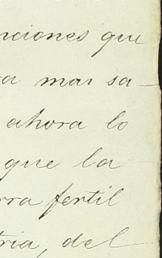 nciones que
a mas sa-
ahora lo
que la
rra fertil
tria, del